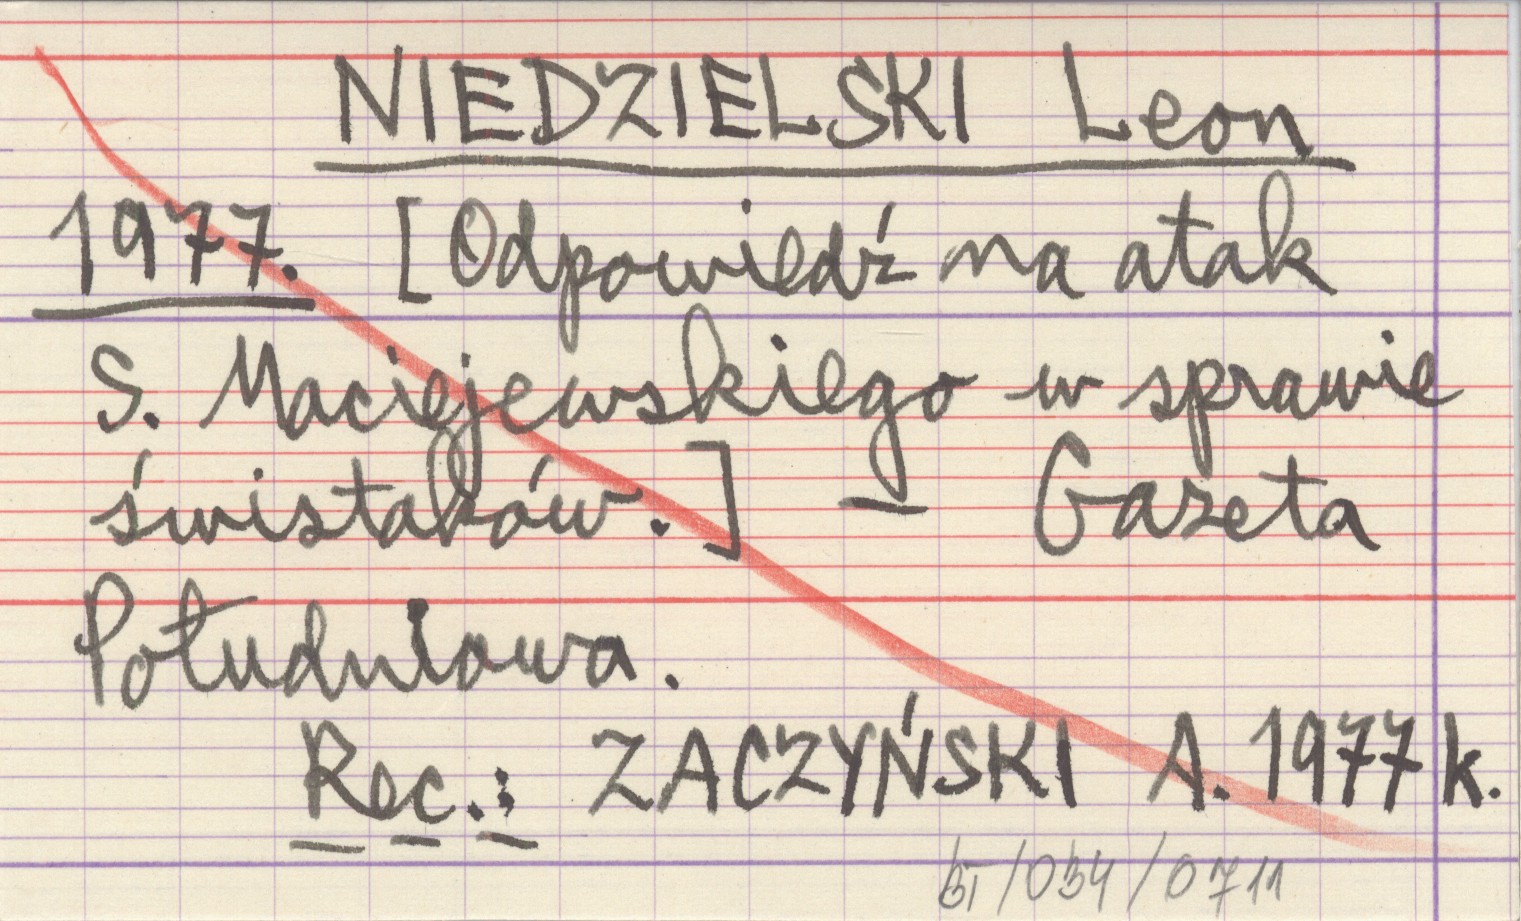 NIEDZIELSKI Leon
1977. [Odpowiedź na atak
S. Maciejewskiego w sprawie
świstaków.] – Gazeta
Południowa.
Rec.: ZACZYŃSKI A. 1977 k.
BT/034/0711